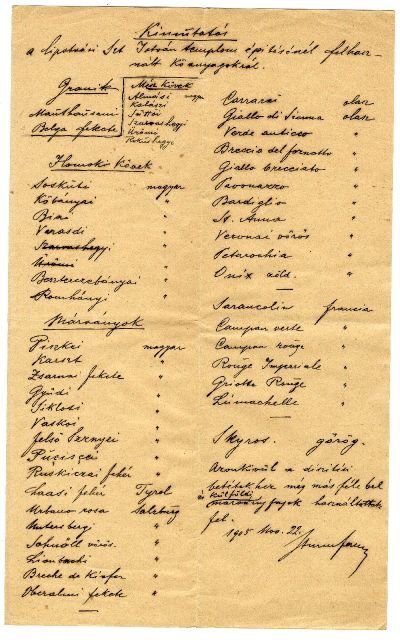 Kimutatás
a lipotvárosi Szt István templom építésénél felhasz-
nált Kőanyagokról.
Gránitt
Mauthauseni
Belga fekete
Mész kövek
Almási magyar
Kalászi
Süttői
Szarvashegyi
Ürömi
Homokő kövek
Sóskúti magyar
Kőbányai "
Biai "
Varasdi "
Szarvashegyi "
Ürömi "
Beszterczebányai "
Romhányi "
Márványok
Piszkei magyar
Karszt "
Zsarna fekete "
Gyűdi "
Siklósi "
Vaskoi "
felső Szernyei "
Puciscei "
Ruskiczai fehér "
Laasi fehér Tyrol
Urbano rosa Salzburg
Untersbergi "
Schnöll vörös "
"
Breche de Kiefer "
Oberalmi fekete "
Carrarai olasz
Giallo di Sienna olasz
Verde antico "
Breccia del fornatto "
Giallo brecciato "
Pavonazzo "
Bardiglio "
St. Anna "
Veronai vörös "
"
Onix zöld. "
Sarancolin francia
Campan verte "
Campan rouge "
Rouge Imperiale "
Griotte Rouge "
Lumachelle "
Skyros. görög.
Azonkívül a díszítési
betétekhez még más féle bel
és külföldi
márványfajok használtattak
fel.
1905 Nov. 22.